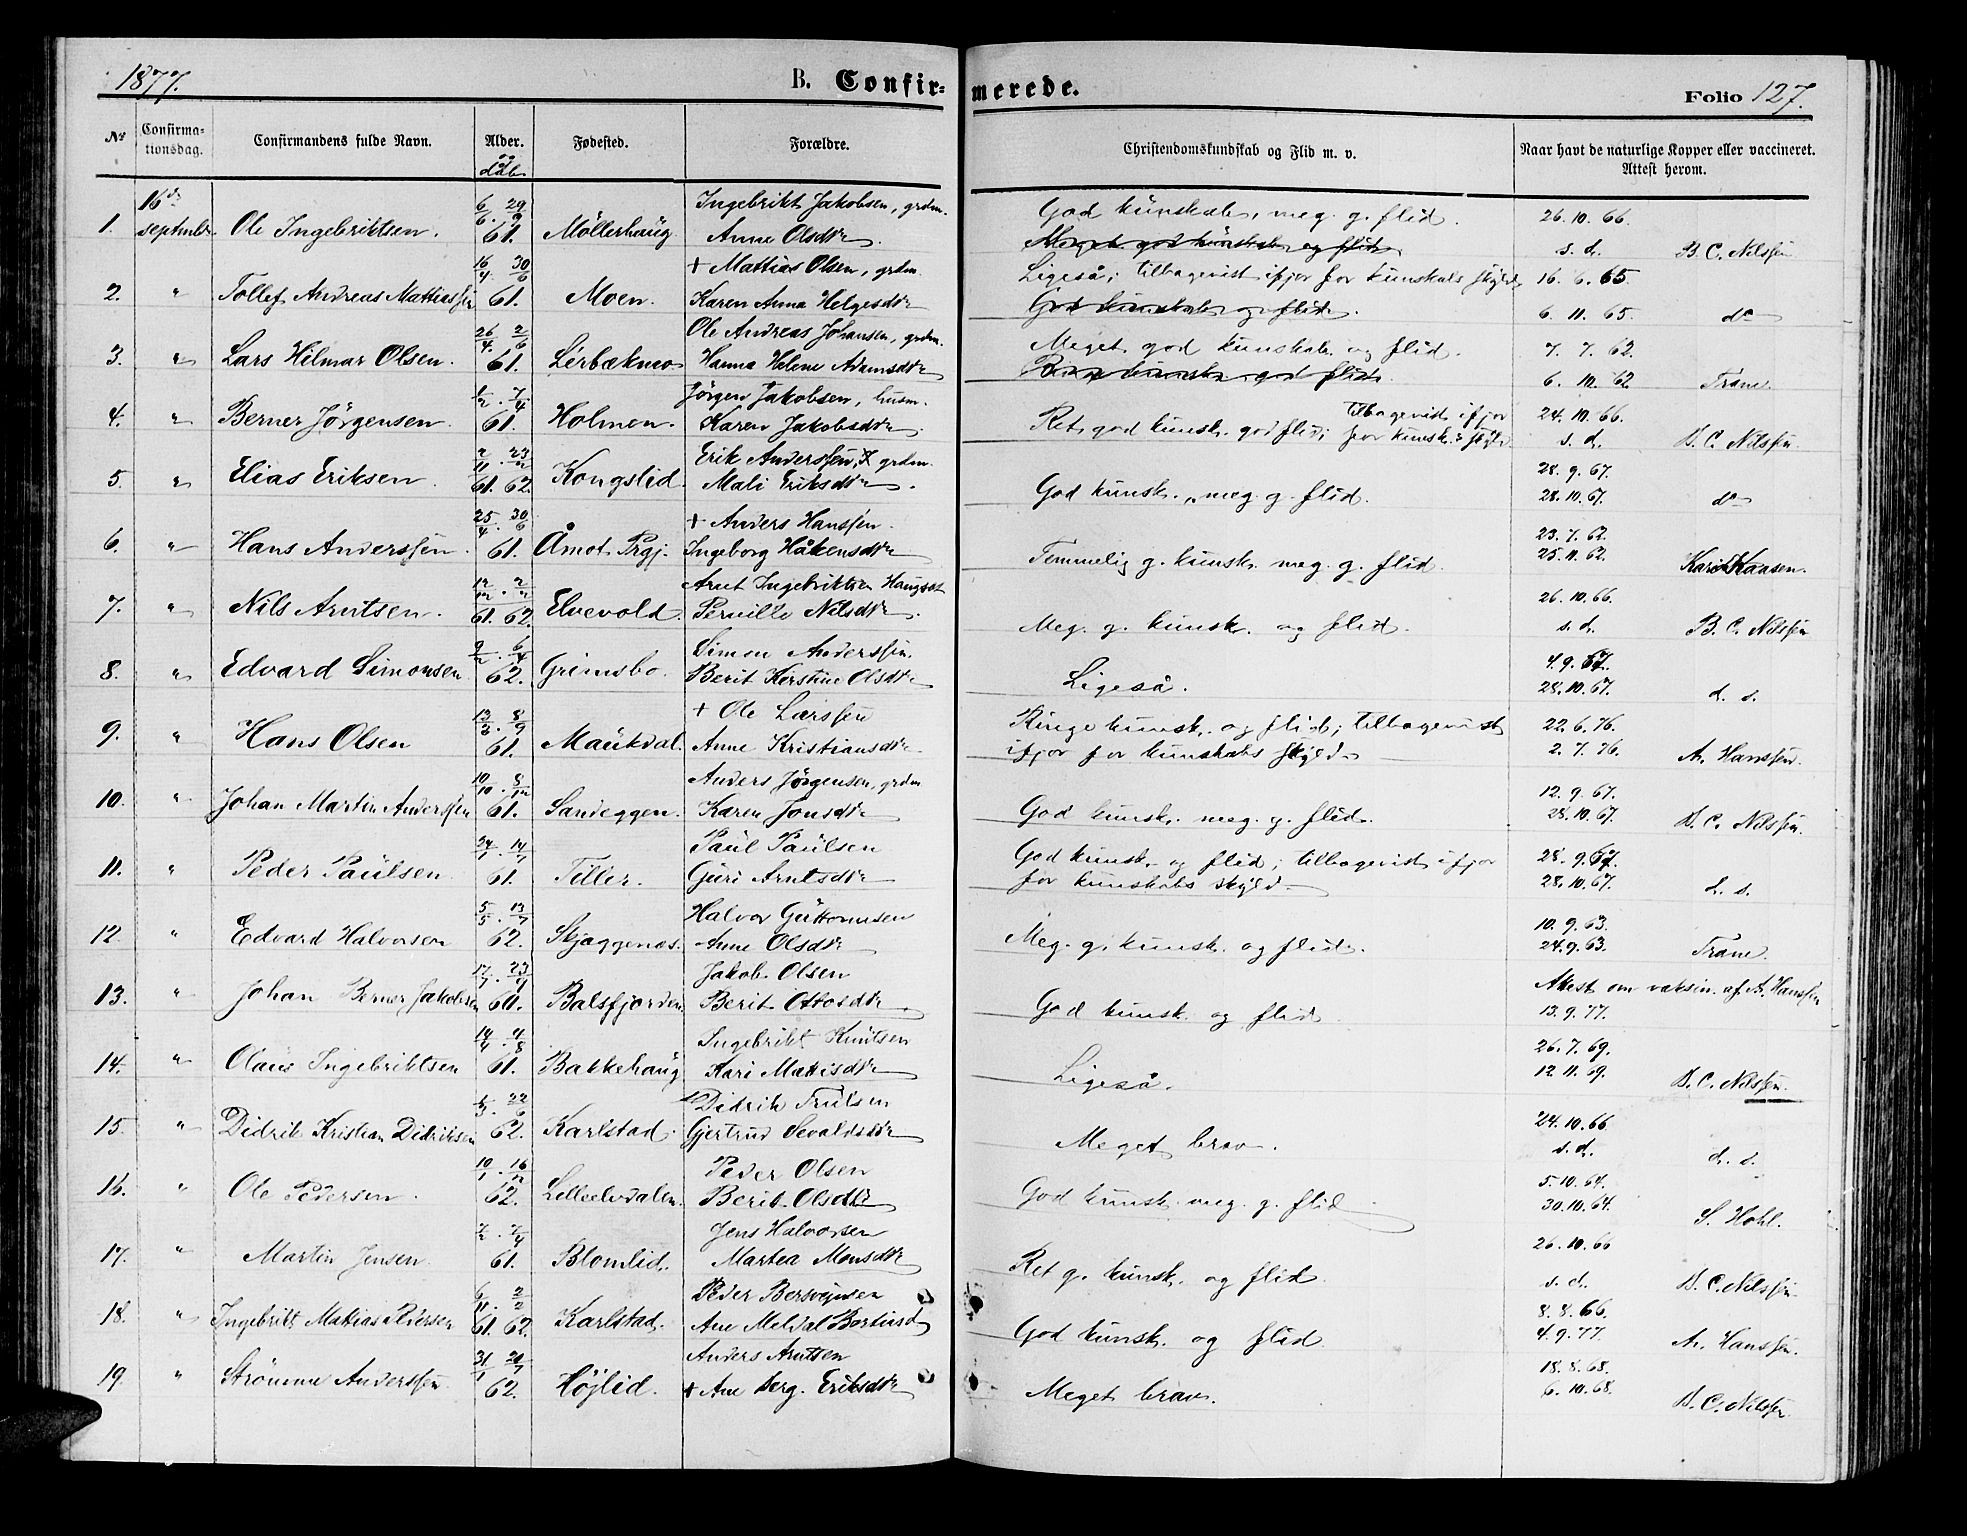 1877.
B. Confir-
merede.
Folio 127.
No
Confirma-
tionsdag.
Confirmandens fulde Navn.
Alder.
og
dåb
Fødested.
Forældre.
Christendomskundskab og Flid m. v.
Naar havt de naturlige Kopper eller vaccineret.
Attest herom.
16de
6/6. 29/9 Ingebrikt Jakobsen, grdm. God kunskab, meg. g. flid. 26. 10. 66.
1. september Ole Ingebriktsen. 61. Möllerhaug Anne Olsdtr. Meget god kunskab og flid s. d. B. C. Nilssen
16/4 30/6 + Mattias Olsen, grdm. Ligeså; tilbagevist ifjor for kunskabs skyld 16. 6. 65.
2. " Tollef Andreas Mattiassen 61. Moen. Karen Anna Helgesdtr God kunskab og flid. 6. 11. 65. do
26/4 2/6 Ole Andreas Johansen, grdm. Meget god kunskab og flid. 7. 7. 62.
3. " Lars Hilmar Olsen. 61. Lerbækmo Hanna Helene Adamsdtr god flid. 6. 10. 62 Trane.
1/2. 7/4 Jörgen Jakobsen, husm. tilbagevist ifjor 24. 10. 66.
4. " Berner Jörgensen. 61. Holmen. Karen Jakobsdtr. Ret god kunsk. god flid; for kunsk.s skyld s. d. B. C. Nilssen
2/11. 23/2 Erik Anderssen, grdm. 28. 9. 67.
5. " Elias Eriksen. 61. 62. Kongslid. Mali Eriksdtr. God kunsk., meg. g. flid. 28. 10. 67. do
25/4 30/6 + Anders Hanssen. 23. 7. 62.
6. " Hans Anderssen. 61. Åmot Prgj. Ingeborg Håkensdtr Temmelig g. kunsk. meg. g. flid. 25. 11. 62.
12/12. 2/2 Arnt Ingebriktsen Haugset 26. 10. 66.
7. " Nils Arntsen. 61. 62. Elvevold. Pernille Nilsdtr. Meg. g. kunsk. og flid. s. d. B. C. Nilssen
9/2. 6/4 Simon Anderssen. 4. 9. 67.
8. " Edvard Simonsen. 62. Grimsbo. Berit Kerstine Olsdtr Ligeså. 28. 10. 67. d. s.
13/2. 8/9 + Ole Larssen Ringe kunsk. og flid; tilbagevist 22. 6. 76.
9. " Hans Olsen 61. Maukdal. Anne Kristiansdtr ifjor for kunskabs skyld 2. 7. 76. A. Hanssen.
10/10. 8/12 Anders Jörgensen, grdm 12. 9. 67.
10. " Johan Martin Anderssen 61. Sandeggen. Karen Jonsdtr God kunsk. meg. g. flid. 28. 10. 67. B. C. Nilssen.
24/1. 14/7 Paul Paulsen God kunsk. og flid; tilbagevist ifjor 28. 9. 67.
11. " Peder Paulsen. 61. Tiller. Guri Arntsdtr for kunskabs skyld. 28. 10. 67. d. s.
5/5. 13/7 Halvor Guttormsen 10. 9. 63.
12. " Edvard Halvorsen 62. Skjæggenæs. Anne Olsdtr Meg. g. kunsk. og flid. 24. 9. 63. Trane.
17/7. 23/9 Jakob Olsen Attest om vaksin. af A. Hanssen
13. " Johan Berner Jakobsen 60. Balsfjorden Berit Ottosdtr. God kunsk. og flid. 13. 9. 77.
14/4. 4/8 Ingebrikt Knutsen 26. 7. 69.
14. " Olaus Ingebriktsen 61. Bakkehaug Kari Mattisdtr Ligeså. 12. 11. 69. B. C. Nilssen.
1/3. 22/6 Didrik Trulsen 24. 10. 66.
15. " Didrik Kristian Didriksen 62. Karlstad. Gjertrud Sevaldsdtr Meget brav. s. d. d. s.
10/1. 16/2 Peder Olsen 5. 10. 64.
16. " Ole Pedersen. 62. Lilleelvdalen. Berit Olsdtr God kunsk. meg. g. flid. 30. 10. 64. S. Hohl.
2/2. 7/4 Jens Halvorsen 26. 10. 66
17. " Martin Jensen. 61. Blomlid. Martea Monsdtr Ret g. kunsk. og flid. s. d. B. C. Nilssen
6/11. 2/2 Peder Bersvejnsen 8. 8. 66.
18. " Ingebrikt Mattias Pedersen 61. 62. Karlstad. Ane Meldal Bertinsd God kunsk. og flid. 4. 9. 77. A. Hanssen.
31/1 20/7 Anders Arntsen 18. 8. 68.
19. " Strömme Anderssen. 62. Höjlid. + Ane Berg. Eriksdtr Meget brav. 6. 10. 68. B. C. Nilssen